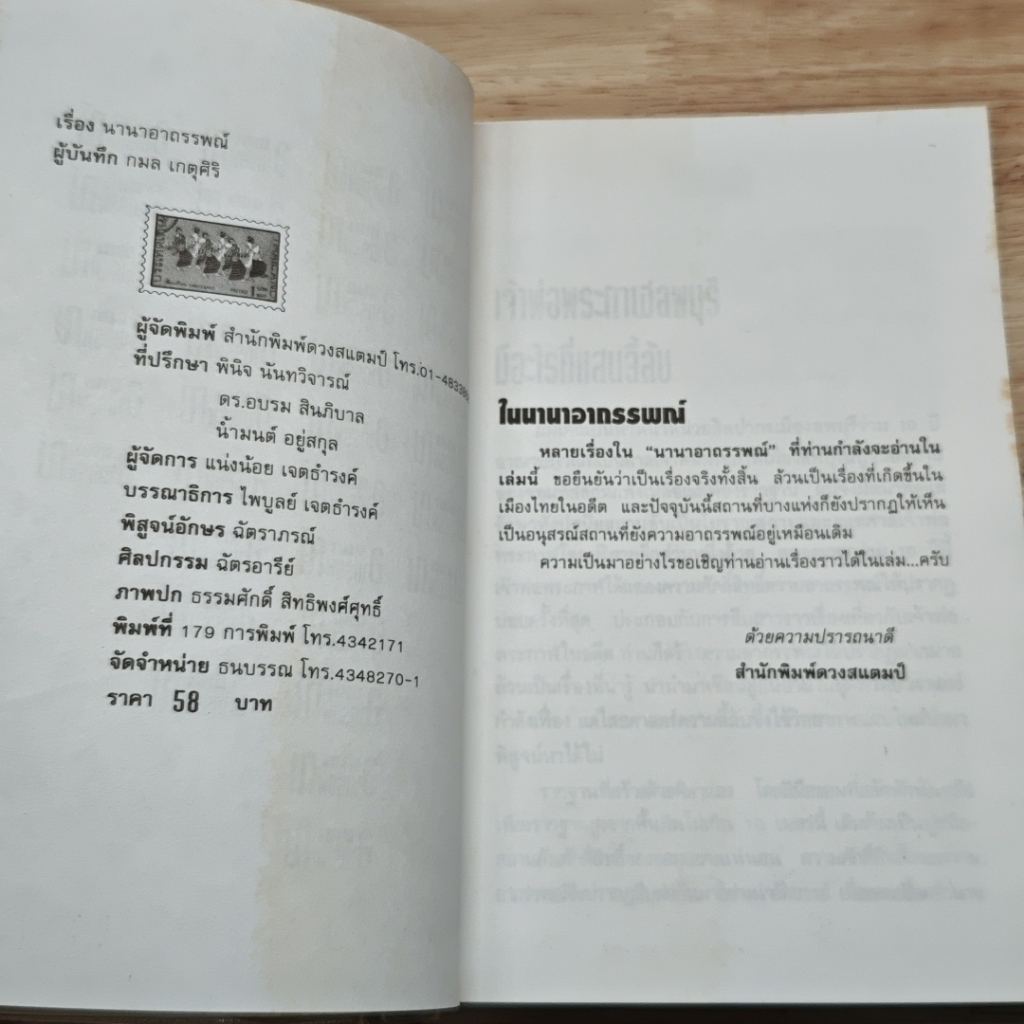 เรื่อง นานาอาถรรพณ์
ผู้บันทึก กมล เกตุศิริ
ผู้จัดพิมพ์ สำนักพิมพ์ดวงสแตมป์ โทร.01-4833
ที่ปรึกษา พินิจ นันทวิจารณ์
ดร.อบรม สินภิบาล
น้ำมนต์ อยู่สกุล
ผู้จัดการ แน่งน้อย เจตธำรงค์
บรรณาธิการ ไพบูลย์ เจตธำรงค์
พิสูจน์อักษร ฉัตราภรณ์
ศิลปกรรม ฉัตรอารีย์
ภาพปก ธรรมศักดิ์ สิทธิพงศ์ศุทธิ์
พิมพ์ที่ 179 การพิมพ์ โทร.4342171
จัดจำหน่าย ธนบรรณ โทร.4348270-1
ราคา 58 บาท
ในนานาอาถรรพณ์
หลายเรื่องใน “นานาอาถรรพณ์” ที่ท่านกำลังจะอ่านใน
เล่มนี้ ขอยืนยันว่าเป็นเรื่องจริงทั้งสิ้น ล้วนเป็นเรื่องที่เกิดขึ้นใน
เมืองไทยในอดีต และปัจจุบันนี้สถานที่บางแห่งก็ยังปรากฏให้เห็น
เป็นอนุสรณ์สถานที่ยังความอาถรรพณ์อยู่เหมือนเดิม
ความเป็นมาอย่างไรขอเชิญท่านอ่านเรื่องราวได้ในเล่ม...ครับ
ด้วยความปรารถนาดี
สำนักพิมพ์ดวงสแตมป์